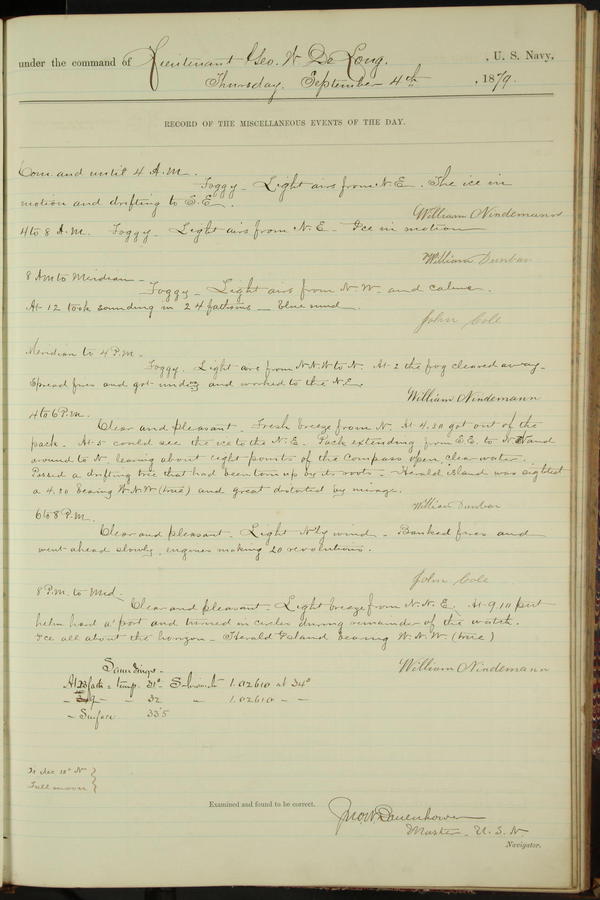 under the command of Lieutenant Geo. W De Long. , U. S. Navy,
Thursday. September 4th , 1879.
RECORD OF THE MISCELLANEOUS EVENTS OF THE DAY.
Com. and until 4 A.M.
Foggy - Light airs from N.E. The ice in
motion and drifting to S.E.
William Nindemann
4 to 8 A.M. Foggy - Light airs from N.E - Ice in motion
William Dunbar
8 AM to Meridian -
Foggy - Light airs from N.W. and calms.
At 12 took sounding in 24 fathoms - blue mud.
John Cole
Meridian to 4 P.M. -
Foggy. Light airs from N.N.W to N. At 2 the fog cleared away -
Spread fires and got underway and worked to the N.E.
William Nindemann
4 to 6 P.M.
Clear and pleasant. Fresh breeze from N. At 4.30 got out of the
pack. At 5 could see the ice to the N.E. Pack extending from S.E. to and
around to N. leaving about eight points of the compass open, clear water.
Passed a drifting tree that had been torn up by its roots - Herald Island was sighted
a 4.30 bearing W.N.W (true) and great distorted by mirage.
William Dunbar
6 to 8 P.M.
Clear and pleasant. Light N'ly wind - Banked fires and
went ahead slowly, engines making 20 revolutions.
John Cole
8 P.M. to Mid.
Clear and pleasant - Light breeze from N.N.E. At 9.10 put
helm hard a'port and turned in circles during remainder of the watch.
Ice all about the horizon - Herald Island bearing W.N.W. (true)
William Nindemann
Soundings -
At fath = temp. 31° 1.02610 at 34°
- - - 32 " 1.02610 - -
- Surface 33°5
Full moon
Examined and found to be correct.
Jno W Danenhower
Master - U. S. N.
Navigator.